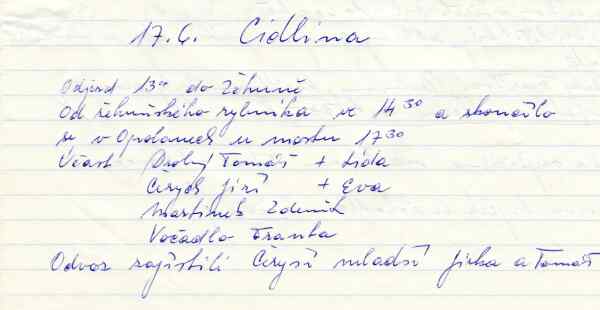 17.6. Cidlina
Odjezd 13°° do Žehuně
Od žehuňského rybníka ve 14³⁰ a skončilo
se v Opolanech u mostu 17³⁰
Účast Drobný Tomáš + Lída
Čírych Jiří + Eva
Martinek Zdeněk
Vočadlo Franta
Odvoz zajistili Čiryší mladší Jirka a Tomáš